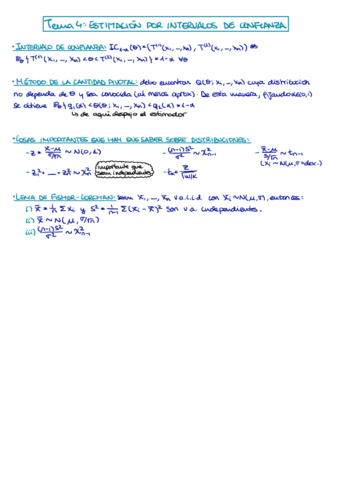 Tema 4: ESTIMACIÓN POR INTERVALOS DE CONFIANZA
• INTERVALO DE CONFIANZA: IC₁₋α(θ) = (T⁽¹⁾(x₁, …, xₙ), T⁽²⁾(x₁, …, xₙ)) ⇔
Pθ{T⁽¹⁾(x₁, …, xₙ) < θ < T⁽²⁾(x₁, …, xₙ)} = 1-α ∀θ
• MÉTODO DE LA CANTIDAD PIVOTAL: debo encontrar Q(θ; x₁, …, xₙ) cuya distribución
no dependa de θ y sea conocida (al menos aprox). De esta manera, fijando α∈(0,1)
se obtiene Pθ{q₁(α) < Q(θ; x₁, …, xₙ) < q₂(α)} = 1-α
↳ de aquí despejo el estimador
• COSAS IMPORTANTES QUE HAY QUE SABER SOBRE DISTRIBUCIONES:
- Z = (x̄-μ)/(σ/√n) ~ N(0,1) - (n-1)S²/σ² ~ χ²ₙ₋₁ - (x̄-μ)/(S/√n) ~ tₙ₋₁
(xᵢ ~ N(μ, σ=desc.)
- Z₁² + … + Zₙ² ~ χ²ₙ (importante que sean independientes) - tₖ = Z/√(W/K)
• LEMA DE FISHER-COCHRAN: sean X₁, …, Xₙ v.a.i.i.d con Xᵢ ~ N(μ, σ), entonces:
i) x̄ = 1/n Σ xᵢ y S² = 1/(n-1) Σ(xᵢ - x̄)² son v.a independientes.
ii) x̄ ~ N(μ, σ/√n)
iii) (n-1)S²/σ² ~ χ²ₙ₋₁